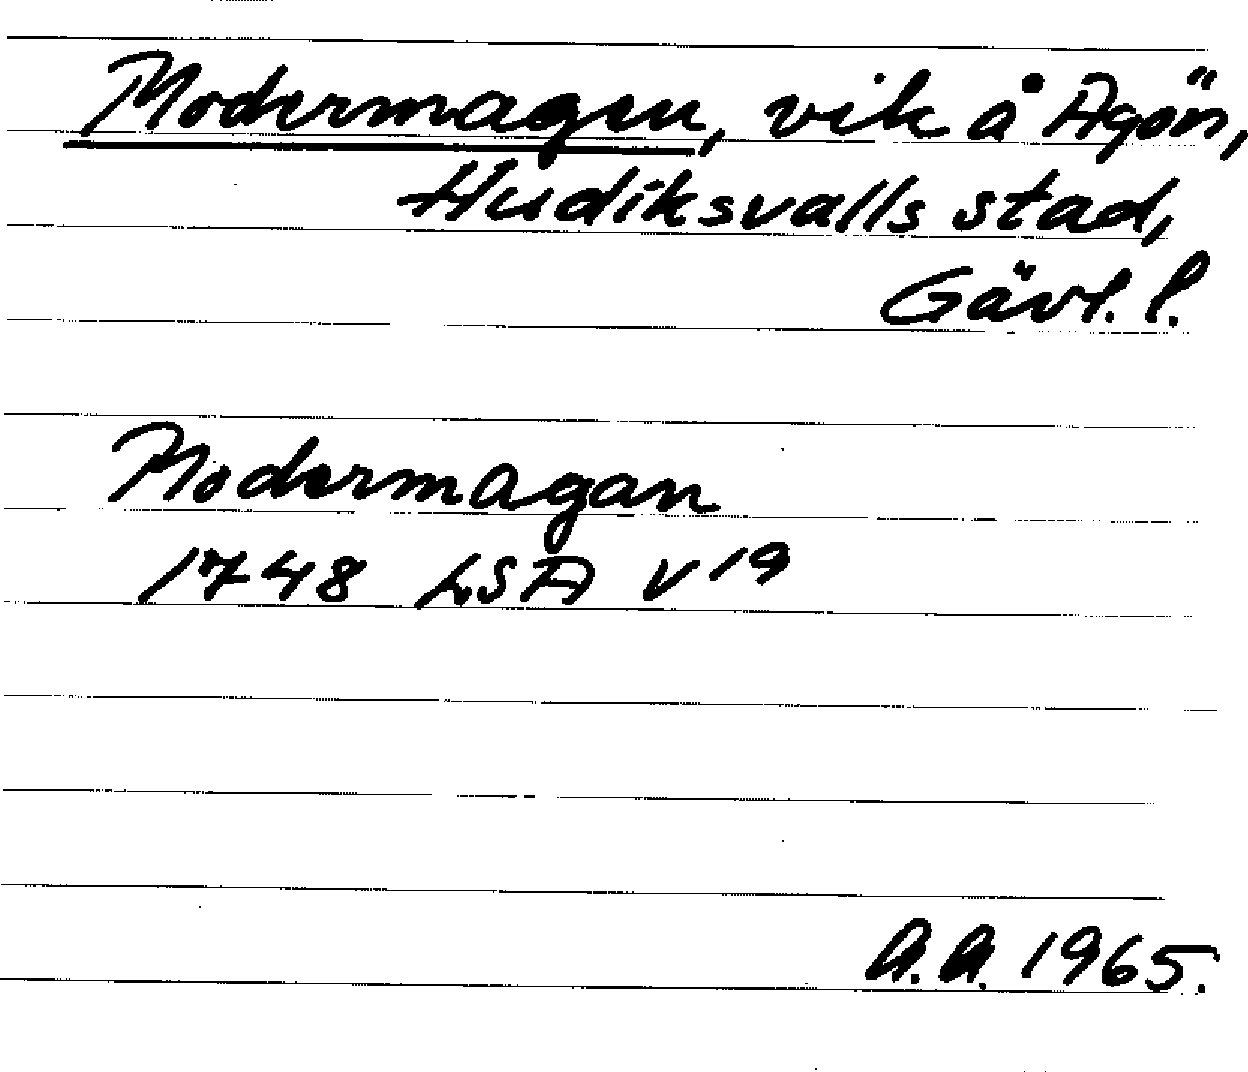 Modermagen, vik å Agön,
Hudiksvalls stad,
Gävl. l.
Modermagan
1748 LSA V 19
A.A. 1965.